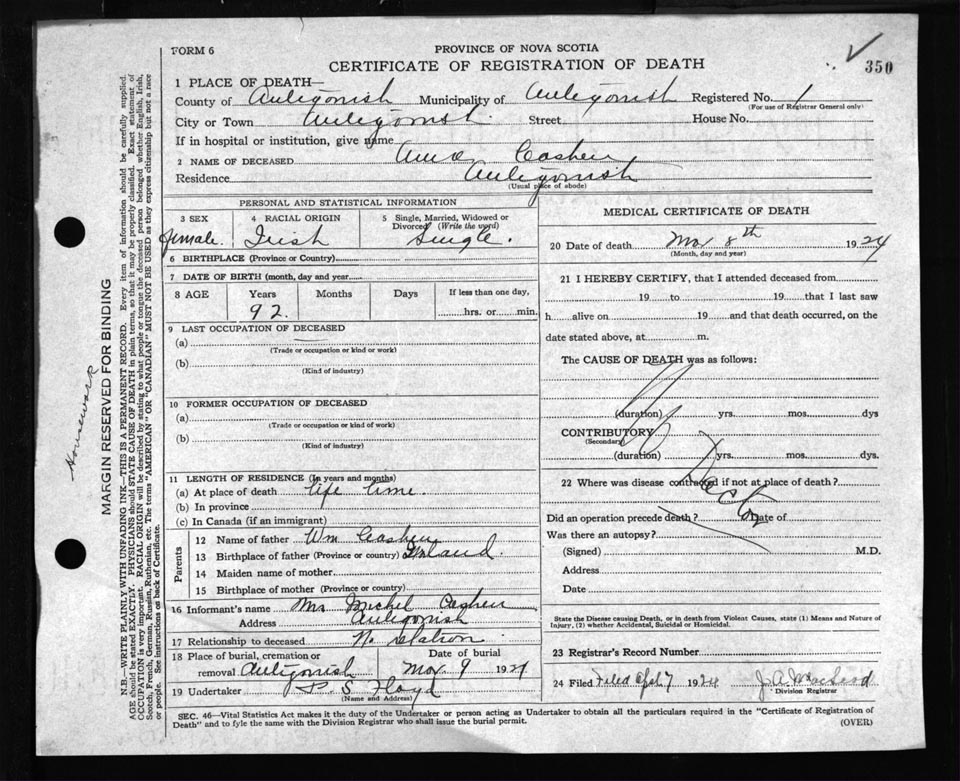 FORM 6
PROVINCE OF NOVA SCOTIA
CERTIFICATE OF REGISTRATION OF DEATH
350
1 PLACE OF DEATH—
County of Antigonish Municipality of Antigonish Registered No. 1
(For use of Registrar General only)
City or Town Antigonish Street House No.
If in hospital or institution, give name
2 NAME OF DECEASED Cashen
Residence Antigonish
(Usual place of abode)
PERSONAL AND STATISTICAL INFORMATION
3 SEX 4 RACIAL ORIGIN 5 Single, Married, Widowed or Divorced (Write the word)
female. Irish Single.
6 BIRTHPLACE (Province or Country)
7 DATE OF BIRTH (month, day and year)
8 AGE Years Months Days If less than one day,
92. hrs. or min.
9 LAST OCCUPATION OF DECEASED
(a)
(Trade or occupation or kind or work)
(b)
(Kind of industry)
10 FORMER OCCUPATION OF DECEASED
(a)
(Trade or occupation or kind of work)
(b)
(Kind of industry)
11 LENGTH OF RESIDENCE (In years and months)
(a) At place of death life time.
(b) In province
(c) In Canada (if an immigrant)
Parents
12 Name of father Wm Cashen
13 Birthplace of father (Province or country) Ireland
14 Maiden name of mother
15 Birthplace of mother (Province or country)
16 Informant's name Mrs Michel Cashen
Address Antigonish
17 Relationship to deceased No relation
18 Place of burial, cremation or removal Antigonish
Date of burial
Mar 9 1924
19 Undertaker P. S. Floyd
(Name and Address)
MEDICAL CERTIFICATE OF DEATH
20 Date of death Mar 8th 1924
(Month, day and year)
21 I HEREBY CERTIFY, that I attended deceased from
19 to 19 that I last saw
h alive on 19 and that death occurred, on the
date stated above, at m.
The CAUSE OF DEATH was as follows:
No Doctor
(duration) yrs. mos. dys
CONTRIBUTORY
(Secondary)
(duration) yrs. mos. dys.
22 Where was disease contracted if not at place of death?
Did an operation precede death? Date of
Was there an autopsy?
(Signed) M.D.
Address
Date
State the Disease causing Death, or in death from Violent Causes, state (1) Means and Nature of
Injury, (2) whether Accidental, Suicidal or Homicidal.
23 Registrar's Record Number
24 Filed Filed Apl 7 1924
Division Registrar
SEC. 46—Vital Statistics Act makes it the duty of the Undertaker or person acting as Undertaker to obtain all the particulars required in the "Certificate of Registration of
Death" and to fyle the same with the Division Registrar who shall issue the burial permit.
(OVER)
Housework
MARGIN RESERVED FOR BINDING
N.B—WRITE PLAINLY WITH UNFADING INK—THIS IS A PERMANENT RECORD. Every item of information should be carefully supplied.
AGE should be stated EXACTLY. PHYSICIANS should STATE CAUSE OF DEATH in plain terms, so that it may be properly classified. Exact statement of
OCCUPATION is very important. RACIAL ORIGIN will be described by stating to what people or tongue the deceased person belonged whether English, Irish,
Scotch, French, German, Russian, Ruthenian, etc. The terms "AMERICAN" OR "CANADIAN" MUST NOT BE USED as they express citizenship but not a race
or people. See instructions on back of Certificate.